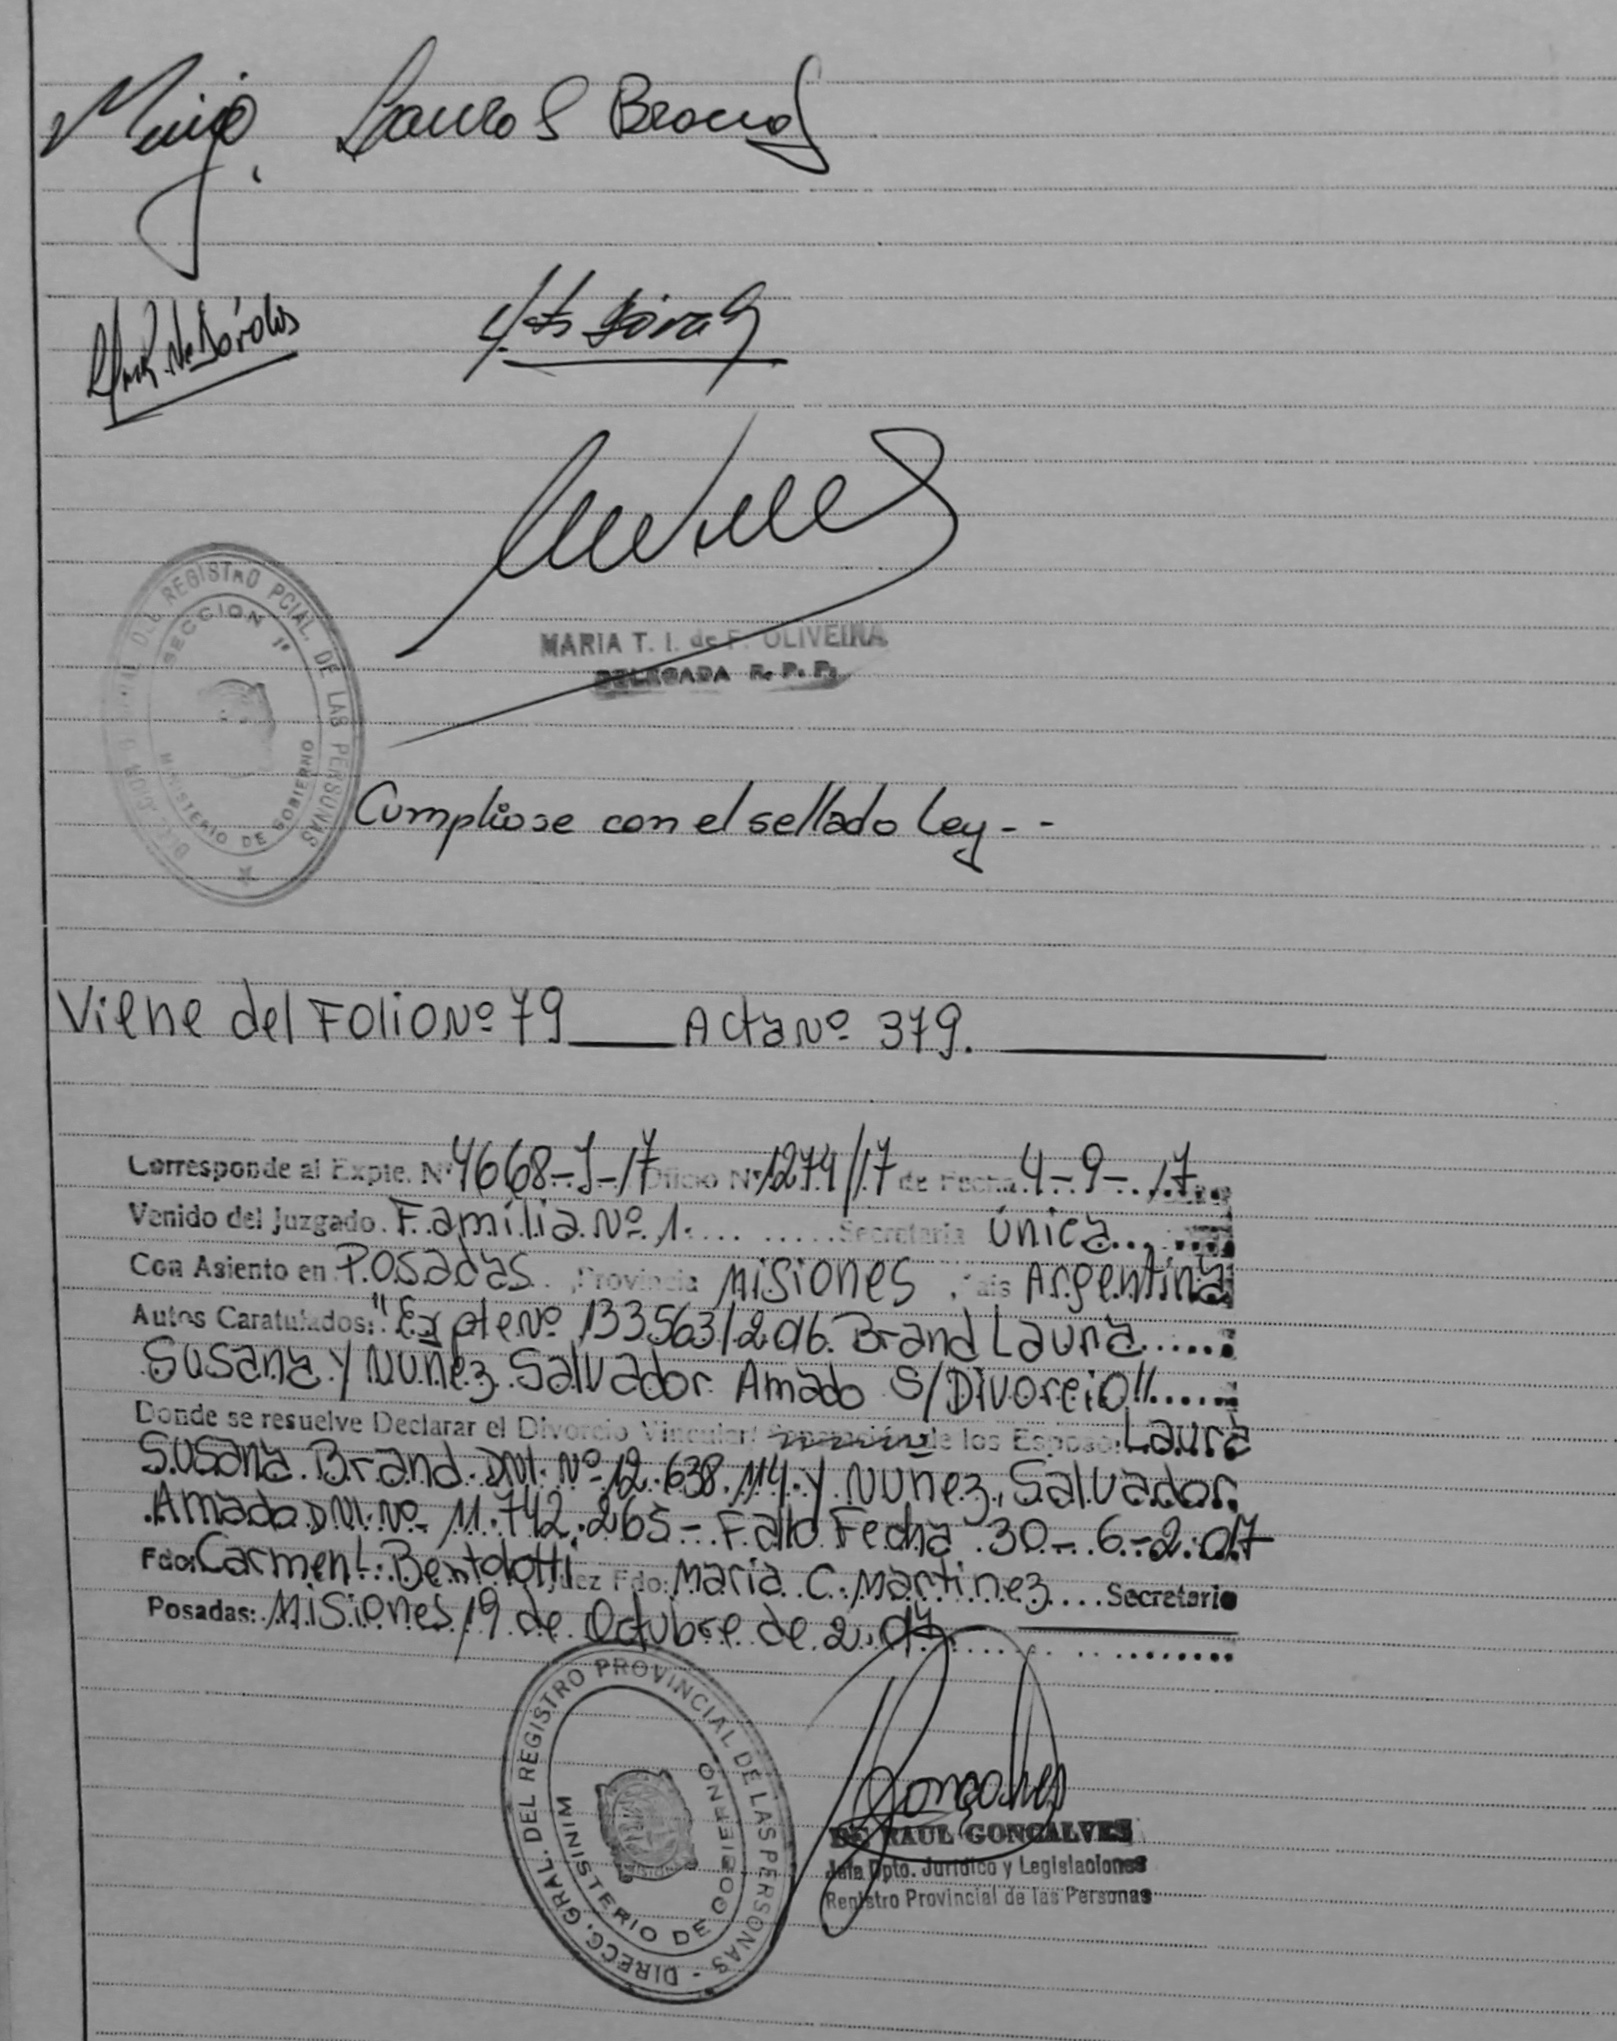 Laura S Brand
MARIA T. I. de F. OLIVEIRA
DELEGADA R. P. P.
REGISTRO PCIAL. DE LAS PERSONAS
SECCION 1ª
MINISTERIO DE GOBIERNO
Cumpliose con el sellado Ley - -
Viene del Folio Nº 79 ____ Acta Nº 379.
Corresponde al Expte. Nº 4668-J-17 Oficio Nº 1274/17 de Fecha 4-9-17
Venido del Juzgado Familia Nº 1. Secretaria Única
Con Asiento en Posadas Provincia Misiones País Argentina
Autos Caratulados: "Expte Nº 133563/2016 Brand Laura
Susana y Nuñez Salvador Amado S/Divorcio"
Donde se resuelve Declarar el Divorcio Vincular/ de los Esposo: Laura
Susana Brand. DNI. Nº 12.638.114. y Nuñez, Salvador
Amado DNI. Nº 11.742.265 - Fallo Fecha 30-6-2.017
Fdo: Carmen L. Bertolotti Juez Fdo: Maria C. Martinez Secretario
Posadas: Misiones, 19 de Octubre de 2.017
DIRECC. GRAL. DEL REGISTRO PROVINCIAL DE LAS PERSONAS -
MINISTERIO DE GOBIERNO
Goncalves
RAUL GONCALVES
Jefe Dpto. Jurídico y Legislaciones
Registro Provincial de las Personas